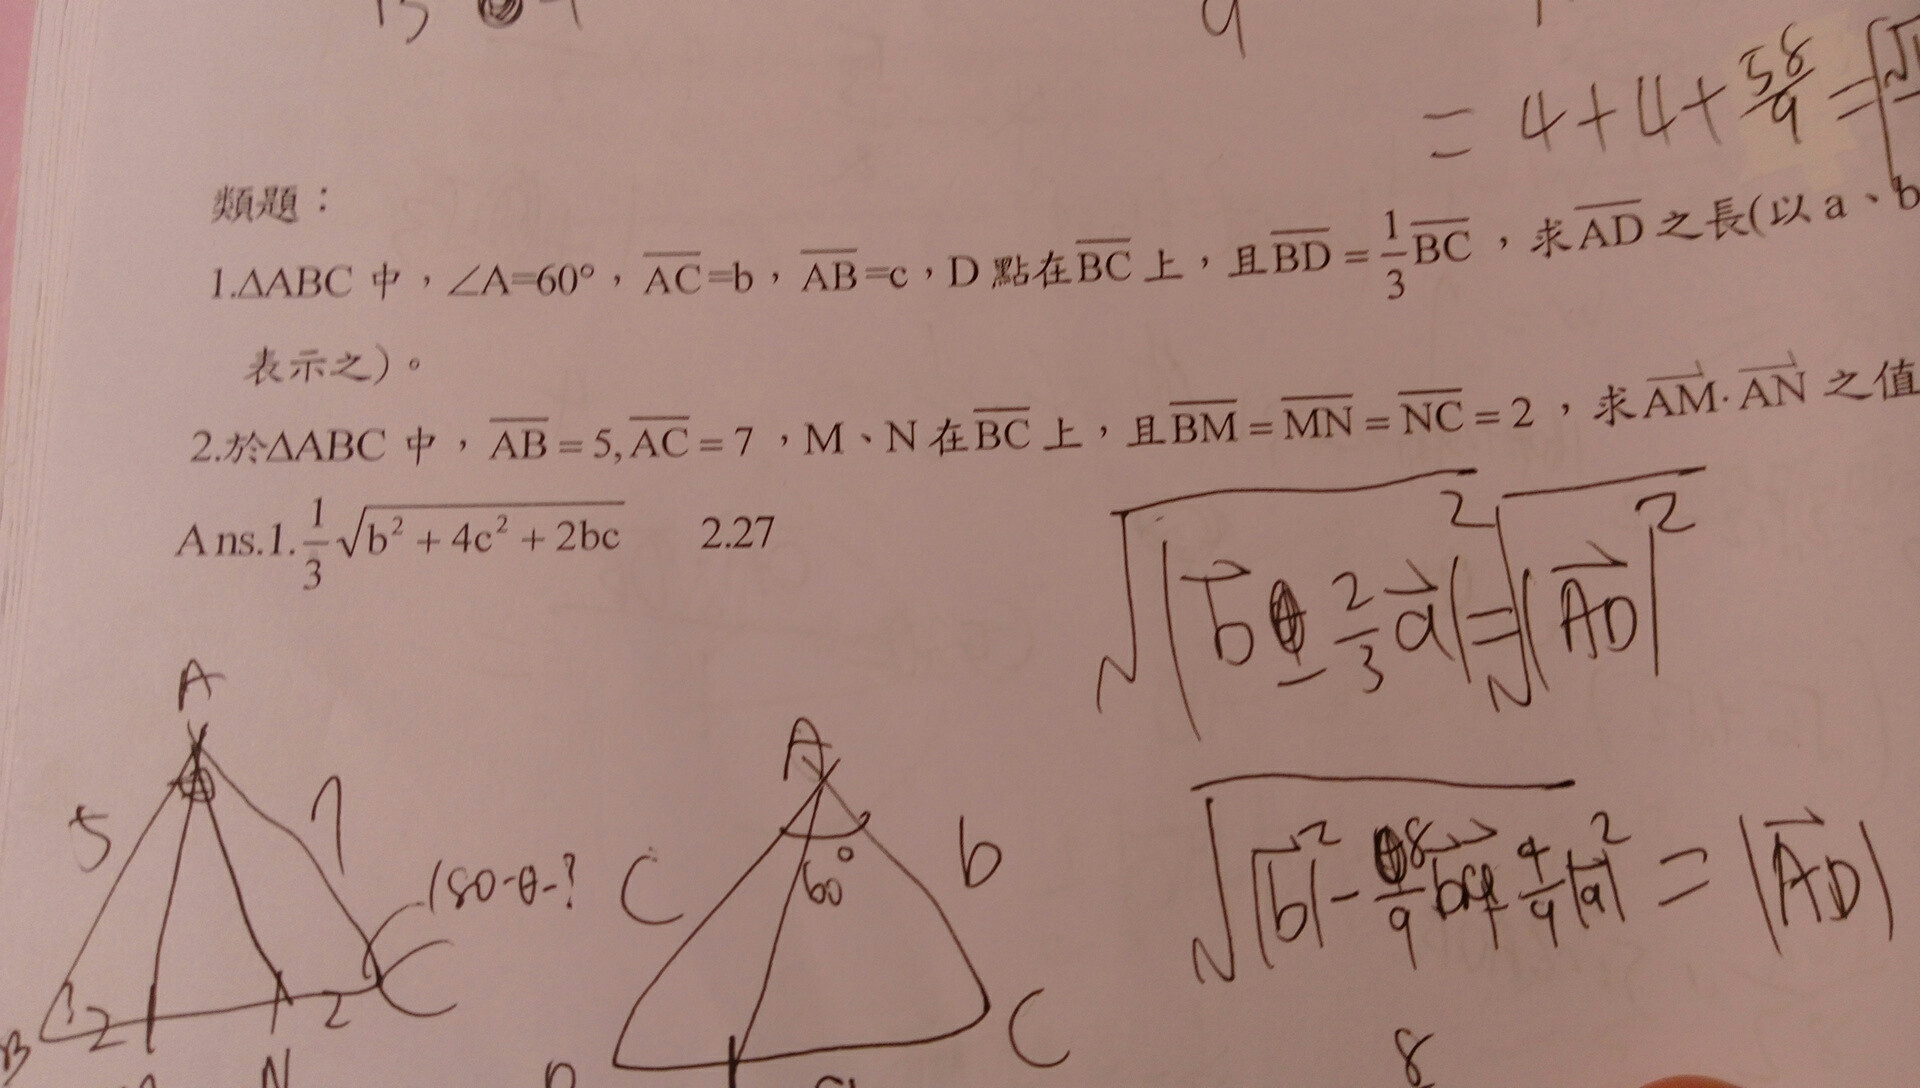 = 4 + 4 + 58/9 =
類題：
1.ΔABC 中，∠A=60°，AC=b，AB=c，D 點在BC 上，且BD = 1/3 BC，求AD 之長(以 a、b
表示之)。
2.於ΔABC 中，AB = 5, AC = 7，M、N 在BC 上，且BM = MN = NC = 2，求AM·AN 之值
Ans.1. 1/3 √(b² + 4c² + 2bc)  2.27
√|b - 2/3 a|² = √|AD|²
A
A
5
7
180-θ-?
C
60°
b
√(|b|² - 8/9 ba + 4/9 |a|²) = |AD|
B
2
2
C
C
N
8